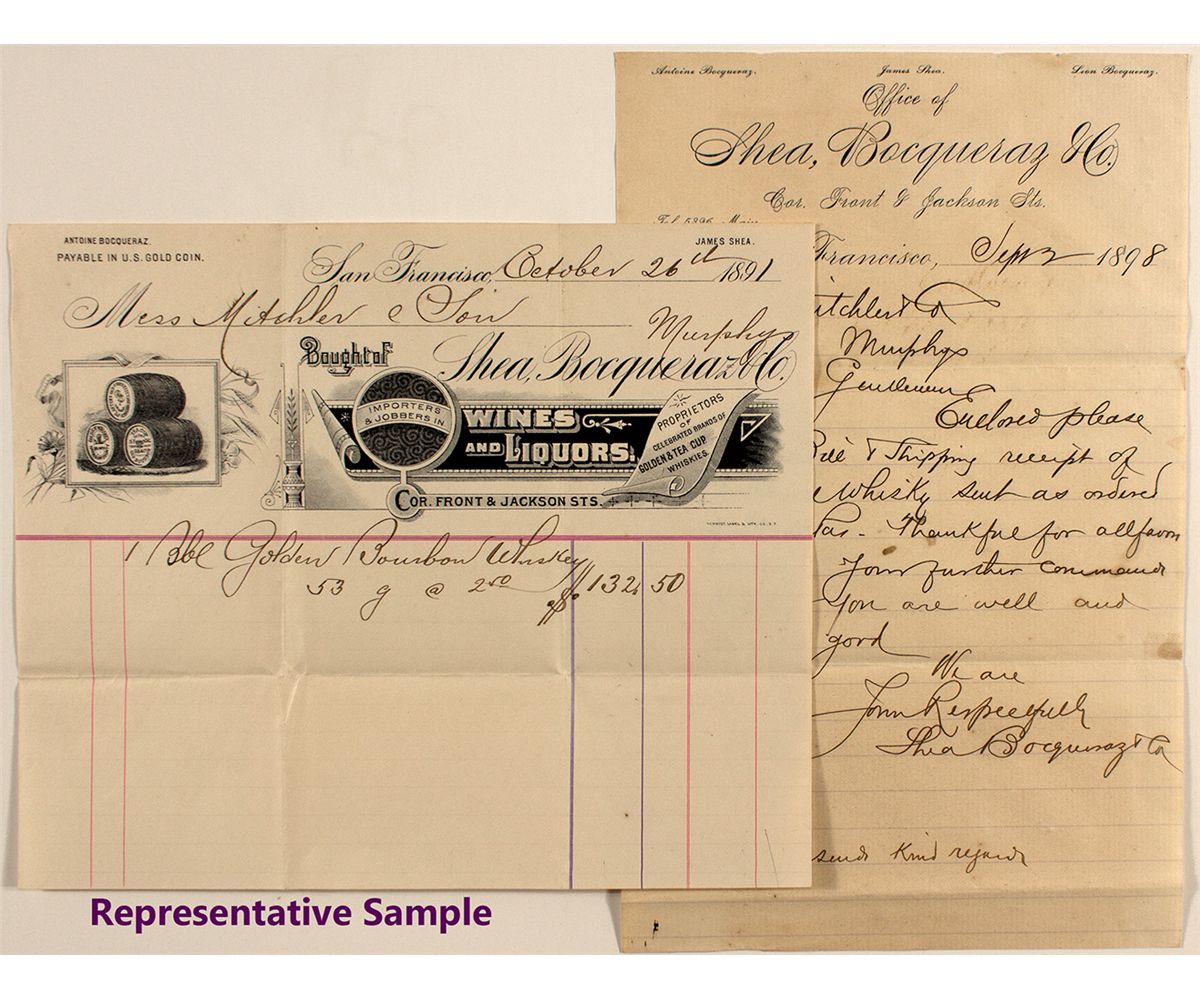 ANTOINE BOCQUERAZ.
JAMES SHEA.
PAYABLE IN U.S. GOLD COIN.
San Francisco, October 26th 1891
Mess Mitchler & Son
Murphys
Bought of Shea, Bocqueraz & Co.
IMPORTERS & JOBBERS IN
WINES AND LIQUORS.
PROPRIETORS
OF
CELEBRATED BRANDS OF
GOLDEN & TEA CUP
WHISKIES.
COR. FRONT & JACKSON STS.
1 Bbl Golden Bourbon Whiskey
53 g @ 2 50 $132 50
Antoine Bocqueraz. James Shea. Leon Bocqueraz.
Office of
Shea, Bocqueraz & Co.
Cor. Front & Jackson Sts.
Tel. 5396 Main
Francisco, Sept 2 1898
itchler & Co
Murphys
Gentlemen
Enclosed please
Bill & Shipping receipt of
Whisky sent as ordered
Thankful for all favors
Your further commands
you are well and
good
We are
Your Respectfully
Shea Bocqueraz & Co
send Kind regards
Representative Sample